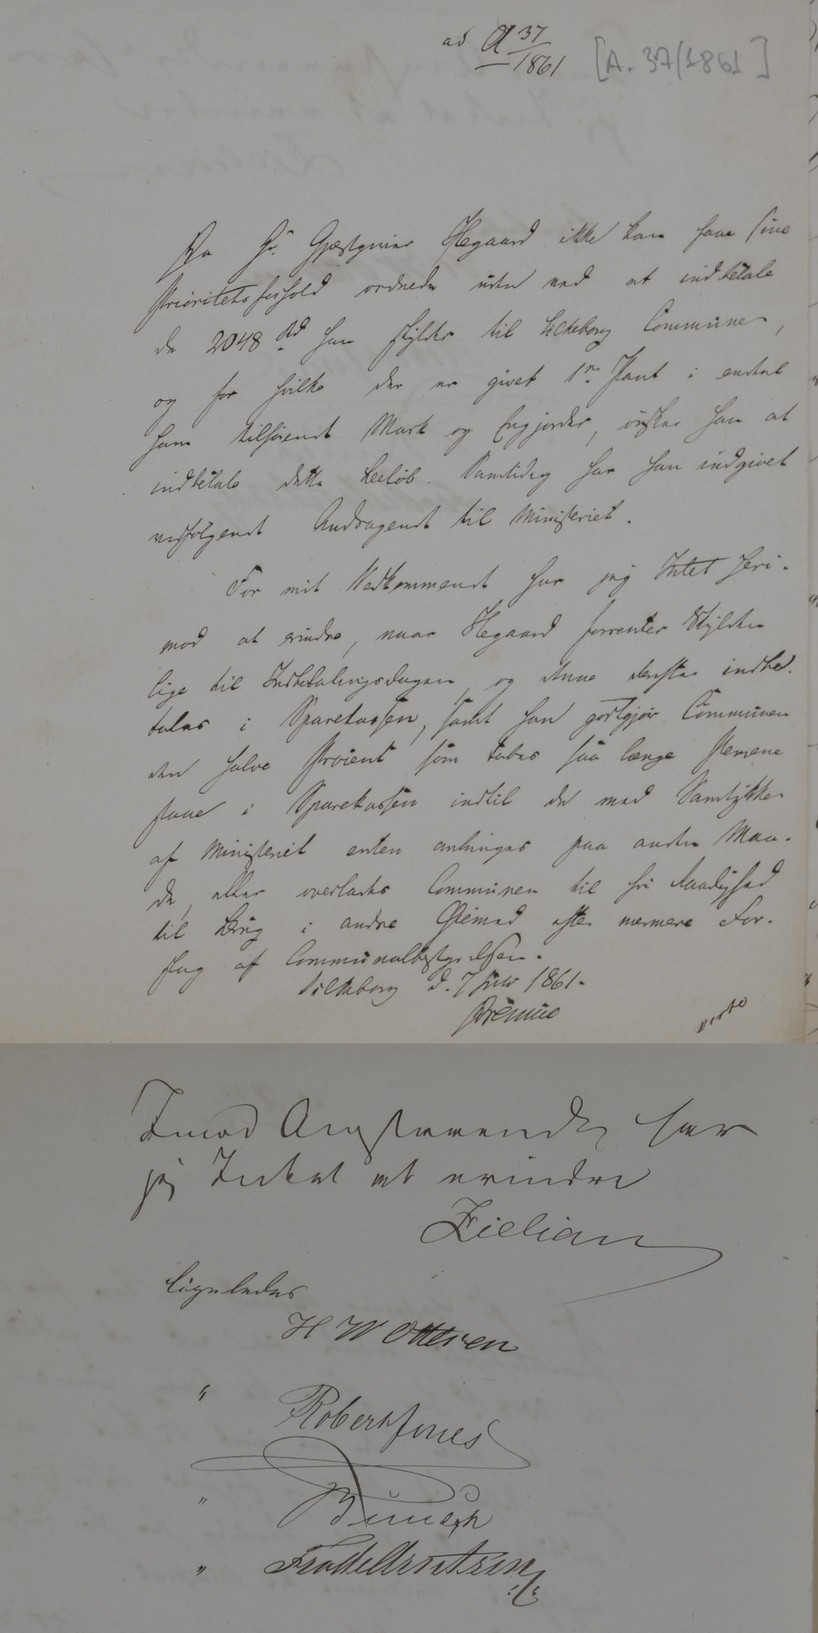 ad A 37/1861 [A. 37/1861]
Da Hr. Gjæstgiver Hegaard ikke kan faae sine
Prioritetsforhold ordnede uden ved at indbetale
de 2048 Rd han skylder til Silkeborg Commune,
og for hvilke der er givet 1ste Pant i endeel
ham tilhørende Mark og Engjorder, ønsker han at
indbetale dette Beløb. Samtidig har han indgivet
vedfølgende Andragende til Ministeriet.
For mit Vedkommende har jeg Intet heri-
mod at erindre, naar Hegaard forrenter Skylden
lige til Indbetalingsdagen, og denne derefter indbe-
tales i Sparekassen, samt han godtgjør Communen
den halve Procent som tabes saa længe Pengene
staae i Sparekassen indtil de med Samtykke
af Ministeriet enten anbringes paa anden Maa-
de, eller overlades Communen til fri Raadighed
til Brug i andre Øiemed efter nærmere For-
slag af Communalbestyrelsen.
Silkeborg d. 7 1861.
Drewsen
Imod Angjørende har
jeg Intet at erindre
Zielian
Ligeledes
H W Ottesen
" Robert Jones
"
"